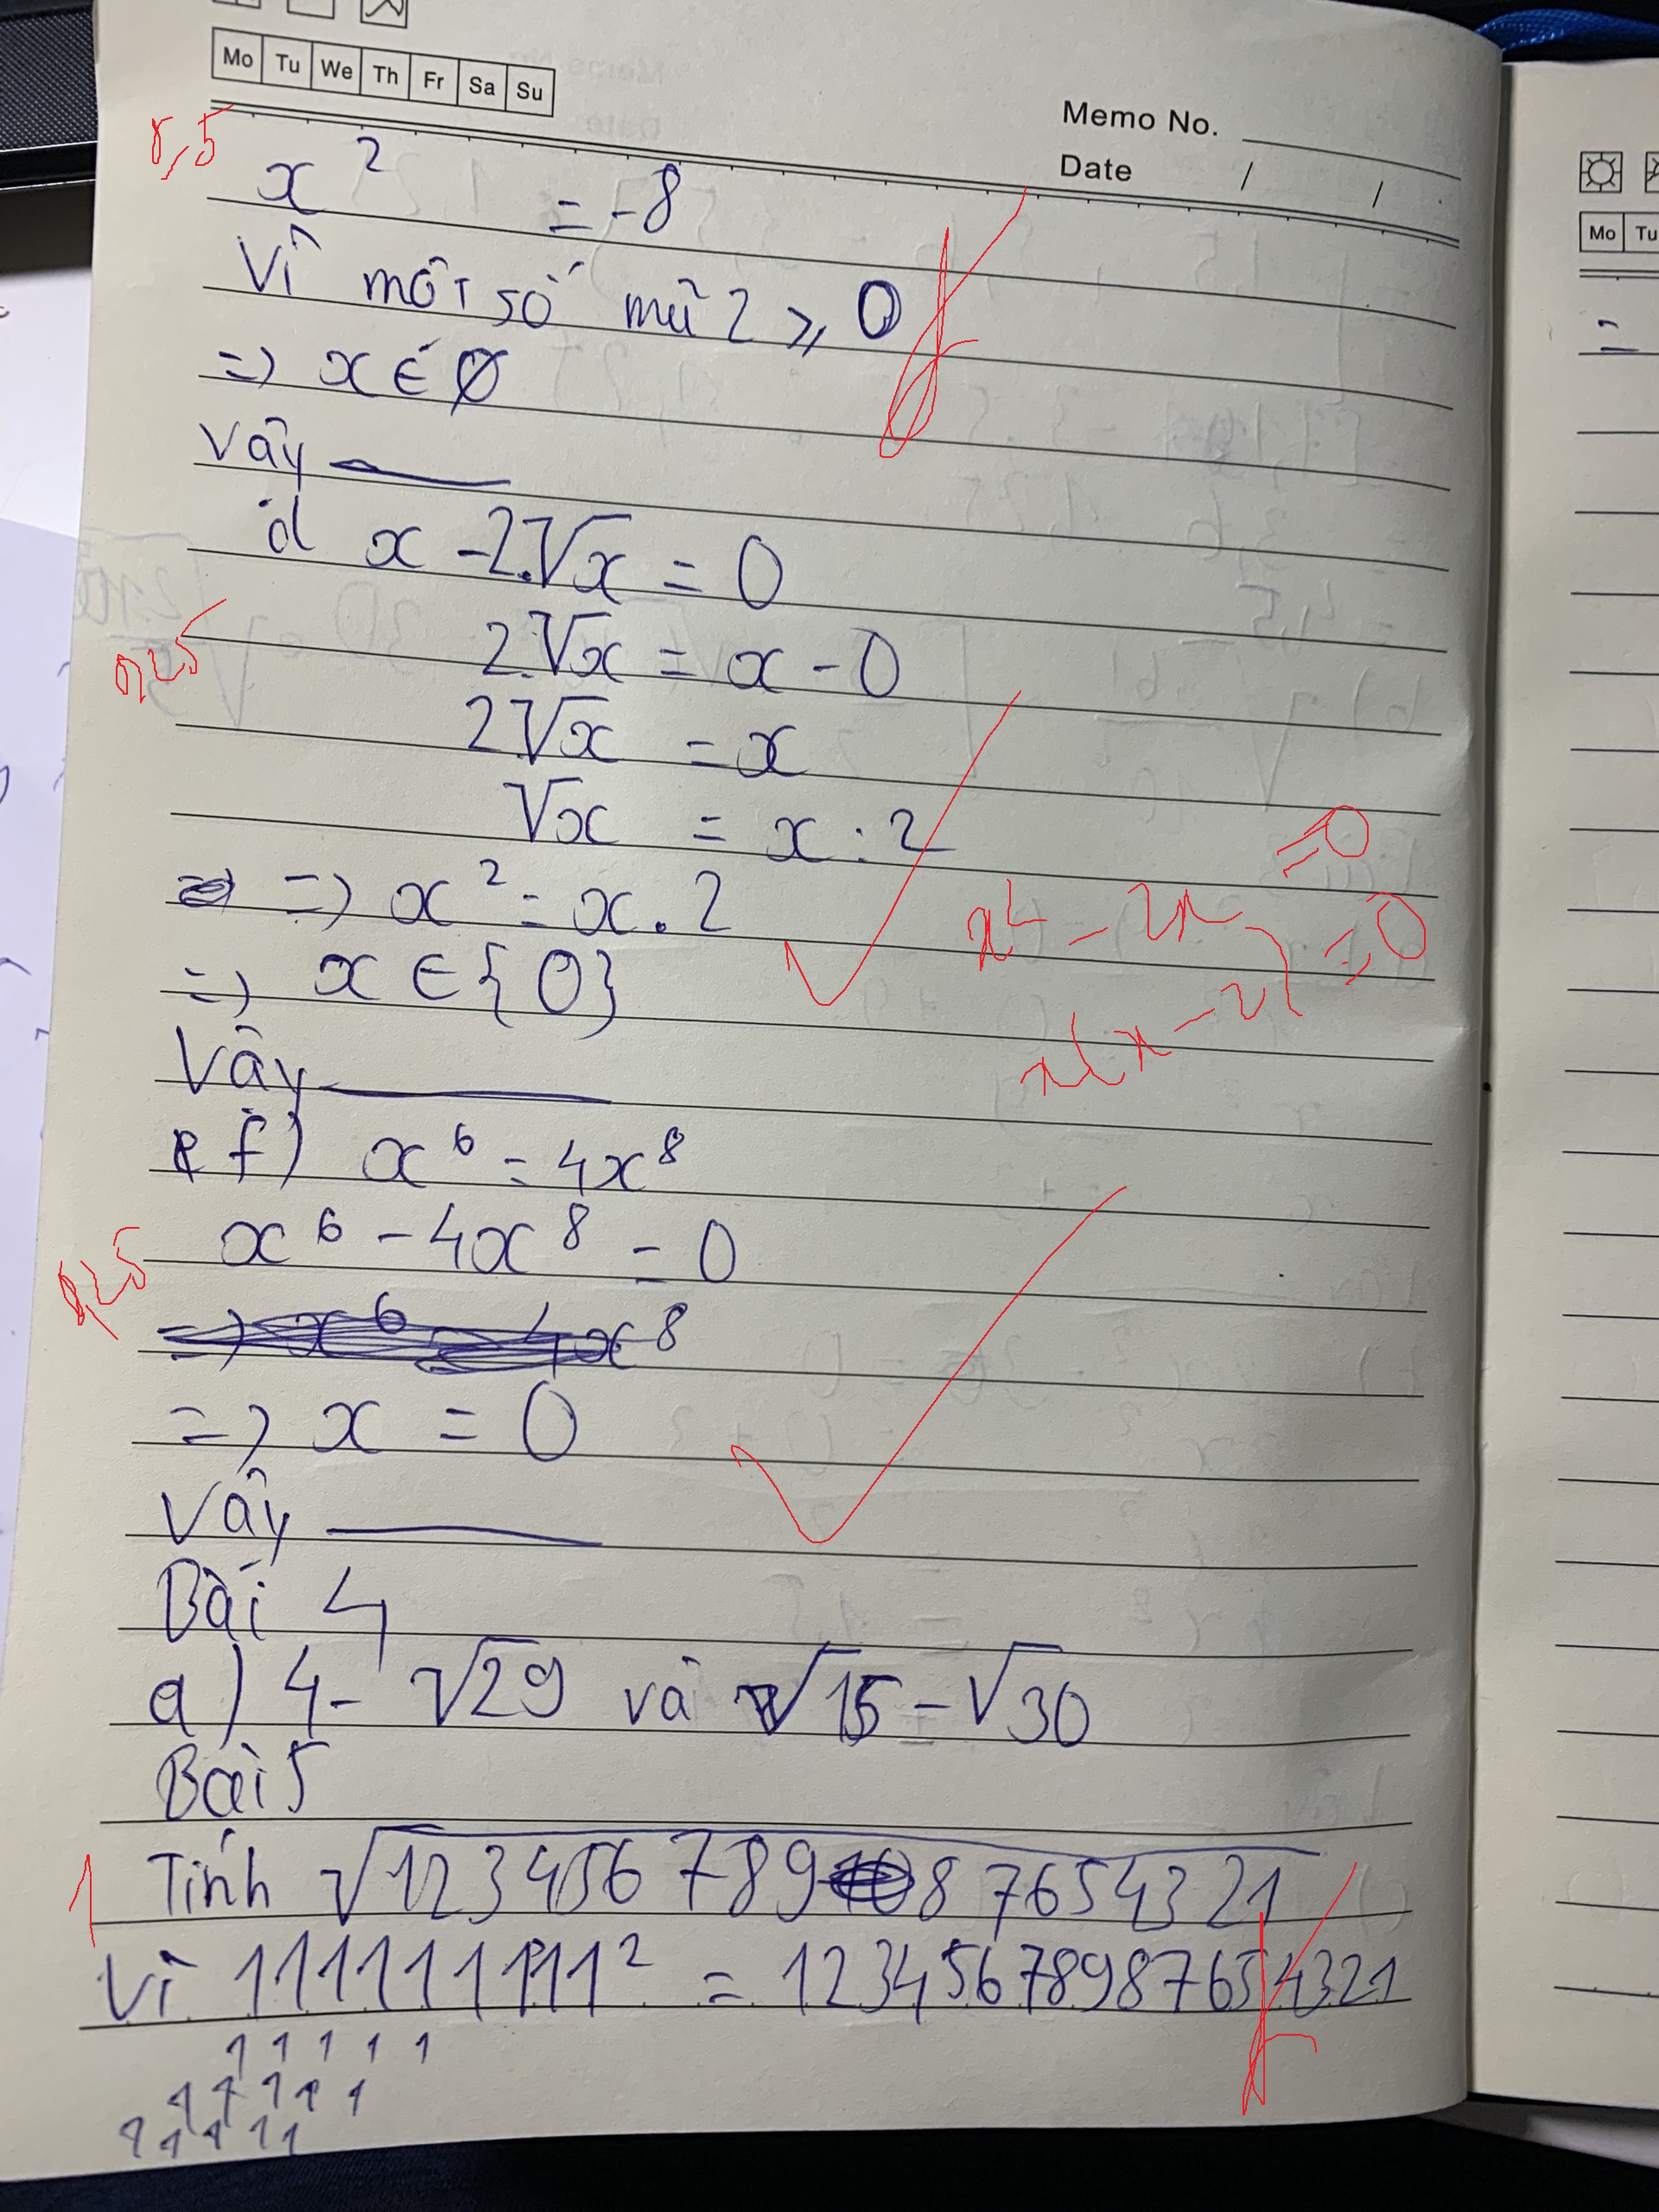 Mo Tu We Th Fr Sa Su
Memo No.
Date / /
x² = -8
Vì một số mũ 2 ⩾ 0
=> x ∈ ∅
Vậy
d x - 2.√x = 0
0,25
2.√x = x - 0
2√x = x
√x = x : 2
=> x² = x . 2
x² - 2x = 0
x(x - 2) = 0
=> x ∈ {0}
Vậy
f) x⁶ = 4x⁸
x⁶ - 4x⁸ = 0
0,25
=> x = 0
Vậy
Bài 4
a) 4 - √29 và √15 - √30
Bài 5
1 Tính √12345678987654321
Vì 111111111² = 12345678987654321
1 1 1 1 1
1 1 1 1 1
1 1 1 1 1
Mo Tu
=